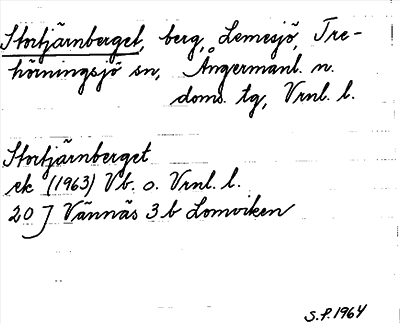 Stortjärnberget, berg, Lemesjö, Tre-
hörningsjö sn, Ångermanl. n.
doms. tg, Vrnl. l.
Stortjärnberget
ek (1963) Vb. o. Vrnl. l.
20 J Vännäs 3 b Lomviken
S.P. 1964